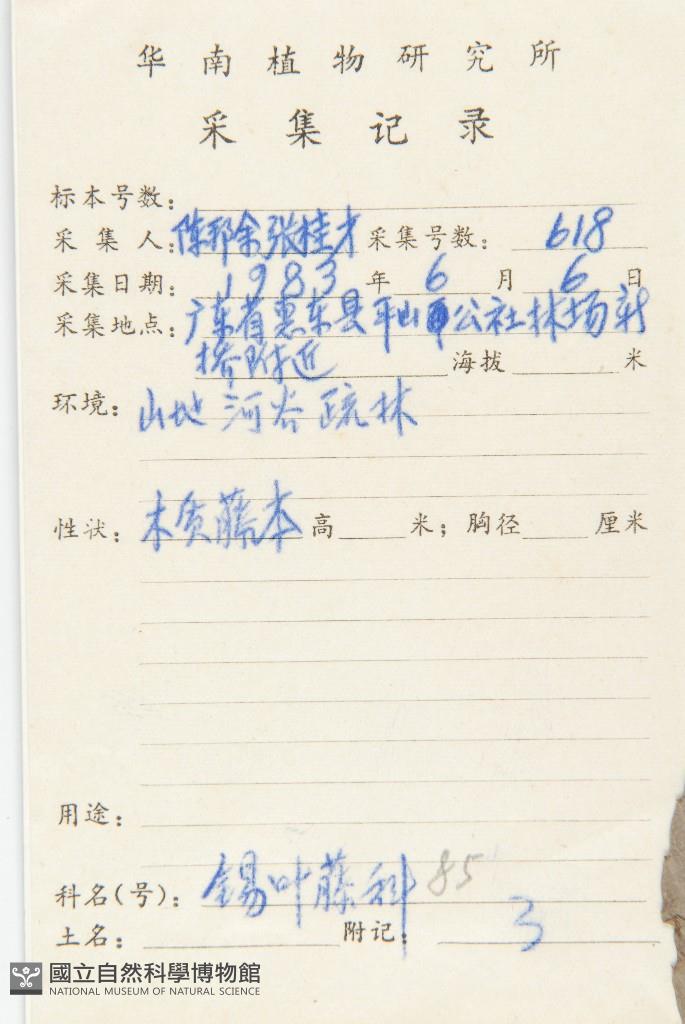 华南植物研究所
采集记录
标本号数：
采集人：陈邦余张桂才 采集号数：618
采集日期：1983年6月6日
采集地点：广东省惠东县平山公社林场新
桥附近 海拔 米
环境：山地 河谷 疏林
性状：木质藤本 高 米；胸径 厘米
用途：
科名(号)：锡叶藤科 85
土名： 附记：3
國立自然科學博物館
NATIONAL MUSEUM OF NATURAL SCIENCE